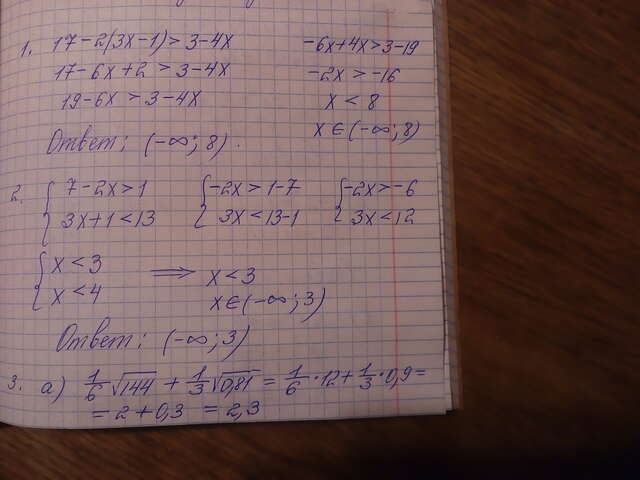 1. 17-2(3x-1)>3-4x
17-6x+2>3-4x
19-6x>3-4x
-6x+4x>3-19
-2x>-16
x<8
x∈(-∞;8)
Ответ: (-∞;8).
2. {7-2x>1 {-2x>1-7 {-2x>-6
3x+1<13 3x<13-1 3x<12
{x<3 ⟹ x<3
x<4 x∈(-∞;3)
Ответ: (-∞;3)
3. а) 1/6 √144 + 1/3 √0,81 = 1/6 · 12 + 1/3 · 0,9 =
= 2+0,3 = 2,3